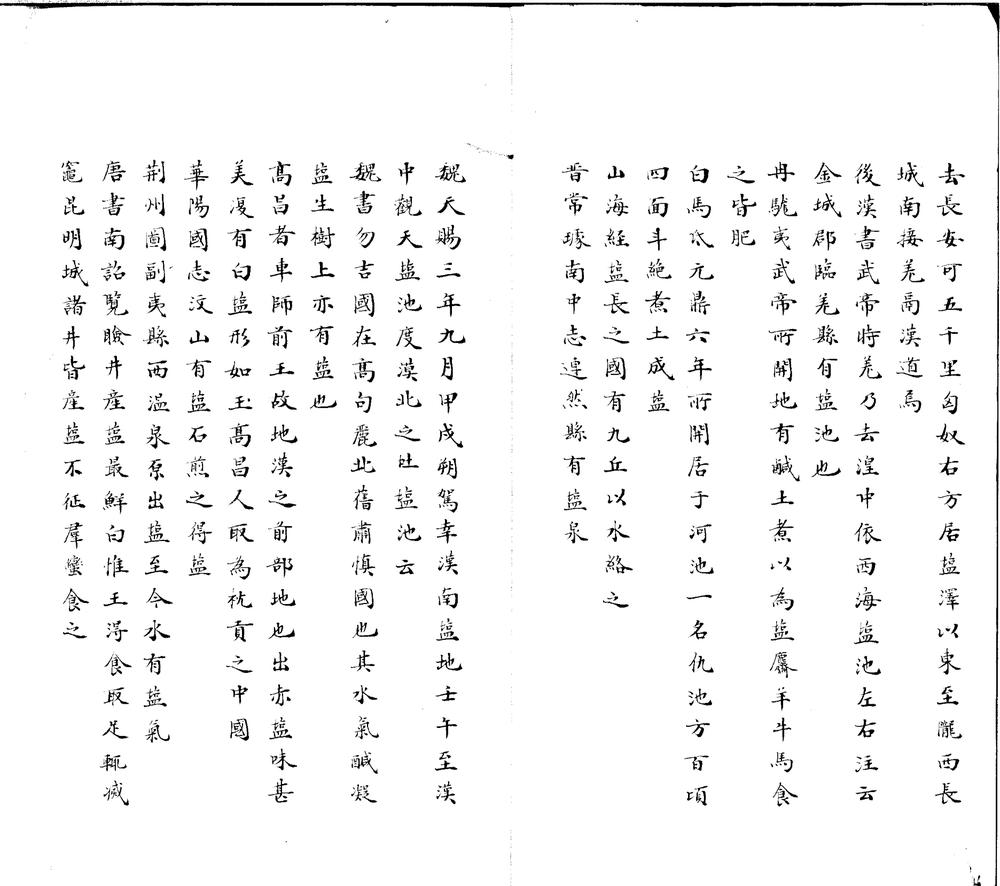 去長安可五千里匈奴右方居塩澤以東至隴西長
城南接羌鬲漢道焉
後漢書武帝時羌乃去湟中依西海塩池左右注云
金城郡臨羌縣有塩池也
冉駹夷武帝所開地有鹹土煮以為塩麡羊牛馬食
之皆肥
白馬氐元鼎六年所開居于河池一名仇池方百頃
四面斗絶煮土成塩
山海経塩長之國有九丘以水絡之
晋常璩南中志連然縣有塩泉
魏天賜三年九月甲戌朔駕幸漠南塩地壬午至漠
中觀天塩池度漠北之吐塩池云
魏書勿吉國在髙句麗北舊肅慎國也其水氣鹹凝
塩生樹上亦有塩池也
髙昌者車師前王故地漢之前部地也出赤塩味甚
美復有白塩形如玉髙昌人取為枕貢之中國
華陽國志汶山有塩石煎之得塩
荆州圖副夷縣西温泉原出塩至今水有塩氣
唐書南詔覽瞼井産塩最鮮白惟王得食取足輒滅
竈昆明城諸井皆産塩不征羣蠻食之